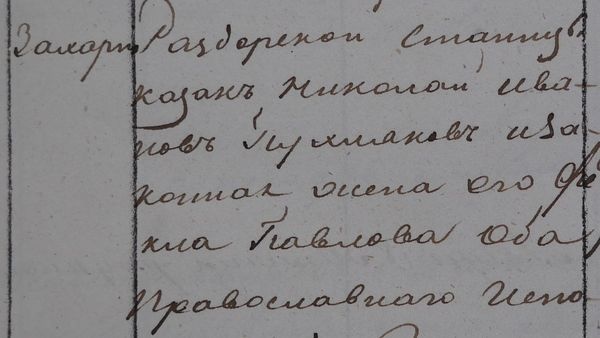 Захарiй Раздорской станицѣ
казакъ Николай Ива-
новъ Пухляковъ и за-
конная жена его Фе
кла Павлова оба
Православнаго Испо-